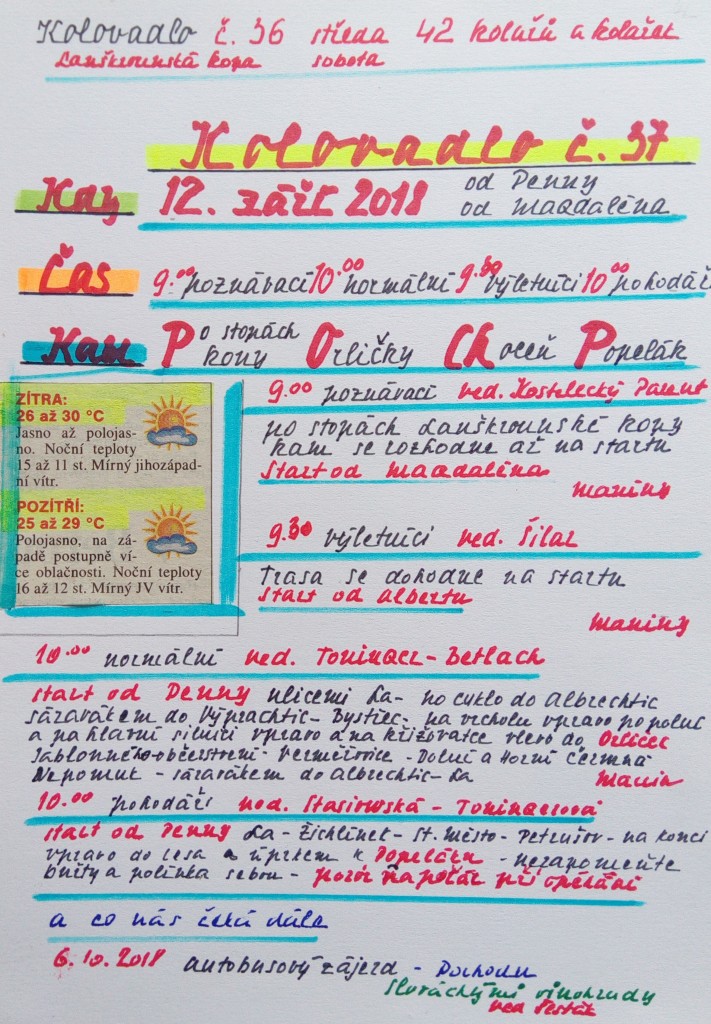 Kolovadlo č. 36 středa 42 kolařů a kolařek
Lanškrounská kopa sobota
Kolovadlo č. 37
Kdy 12. září 2018 od Penny
od Magdaléna
Čas 9.00 poznávací 10.00 normální 9.30 výletníci 10.00 pohodáři
Kam Po stopách kopy Orličky CHoceň Popelák
9.00 poznávací ved. Kostelecký
po stopách Lanškrounské kopy
kam se rozhodne až na startu
Start od Magdaléna
Maniny
ZÍTRA:
26 až 30 °C
Jasno až polojas-
no. Noční teploty
15 až 11 st. Mírný jihozápad-
ní vítr.
POZÍTŘÍ:
25 až 29 °C
Polojasno, na zá-
padě postupně ví-
ce oblačnosti. Noční teploty
16 až 12 st. Mírný JV vítr.
9.30 výletníci ved. Šilar
Trasa se dohodne na startu
Start od Albertu
Maniny
10.00 normální ved. Toninger - Betlach
start od Penny ulicemi La- po cyklo do Albrechtic
sázavákem do Výprachtic - Bystřec - na vrcholu vpravo po polní
a na hlavní silnici vpravo a na křižovatce vlevo do Orliček
Jablonného - občerstvení - Verměřovice - Dolní a Horní Čermná
Nepomuk - sázavákem do Albrechtic - La
10.00 pohodáři ved. Stasiowská - Toningerová
start od Penny La - Žichlínek - St. Město - Petrušov - na konci
vpravo do lesa a úprkem k Popeláku - nezapomeňte
buřty a polínka sebou - pozor na požár při opékání
a co nás čeká dále
6. 10. 2018 autobusový zájezd - Pochodu
Slováckými vinohrady
ved Šesták